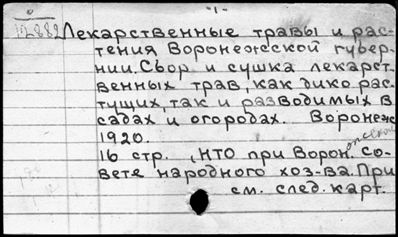 -1-
12882 Лекарственные травы и рас-
тения Воронежской губер-
нии. Сбор и сушка лекарст-
венных трав, как дико рас-
тущих, так и разводимых в
садах и огородах. Воронеж
1920.
16 стр., НТО при Ворон. Со-
вете народного хоз-ва. При
см. след. карт.